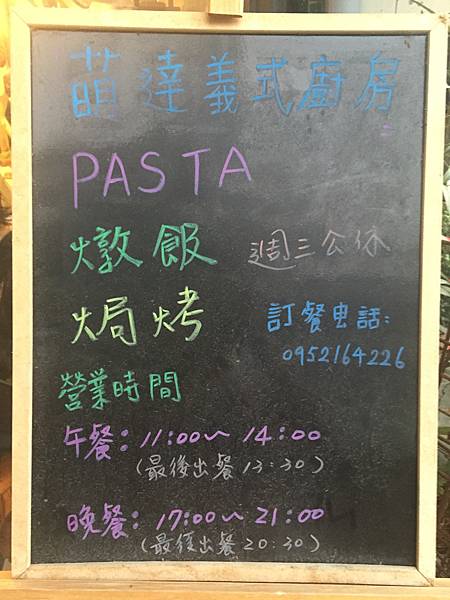 萌達義式廚房
PASTA
燉飯 週三公休
焗烤
訂餐电話:
0952164226
營業時間
午餐: 11:00~14:00
(最後出餐 13:30)
晚餐: 17:00~21:00
(最後出餐 20:30)